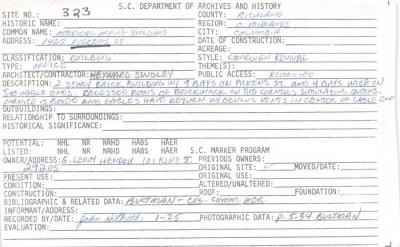 S.C. DEPARTMENT OF ARCHIVES AND HISTORY
SITE NO.: 323 COUNTY: RICHLAND
HISTORIC NAME: REGION: C. MIDLANDS
COMMON NAME: MEDICAL OFFICE BUILDING CITY: COLUMBIA
ADDRESS: 1427 PICKENS ST. DATE OF CONSTRUCTION:
ACREAGE:
CLASSIFICATION: BUILDING STYLE: GEORGIAN REVIVAL
TYPE: OFFICE THEME(S):
ARCHITECT/CONTRACTOR: HEYWARD SINGLEY PUBLIC ACCESS:
DESCRIPTION: 2 STORY BRICK BUILDING W/ 9 BAYS ON PICKENS ST. AND 4 BAYS WIDE ON
THE GABLE ENDS. RECESSED ROWS OF BRICKWORK ON THE CORNERS SIMULATING QUOINS.
CORNICE IS AND GABLES HAVE RETURN W/ OCULUS VENTS IN CENTER OF GABLE END
OUTBUILDINGS:
RELATIONSHIP TO SURROUNDINGS:
HISTORICAL SIGNIFICANCE:
POTENTIAL: NHL NR NRHD HABS HAER S.C. MARKER PROGRAM
LISTED: NHL NR NRHD HABS HAER
OWNER/ADDRESS: G. LEROY HENDRIX 101 KING ST. PREVIOUS OWNERS:
29205 ORIGINAL SITE: MOVED/DATE:
PRESENT USE: ORIGINAL USE:
CONDITION: ALTERED/UNALTERED:
CONSTRUCTION: ROOF: FOUNDATION:
BIBLIOGRAPHIC & RELATED DATA: BULTMAN - COL. COMM. HER.
INFORMANT/ADDRESS:
RECORDED BY/DATE: John 1-25 PHOTOGRAPHIC DATA: P.5.34 BULTMAN
EVALUATION: